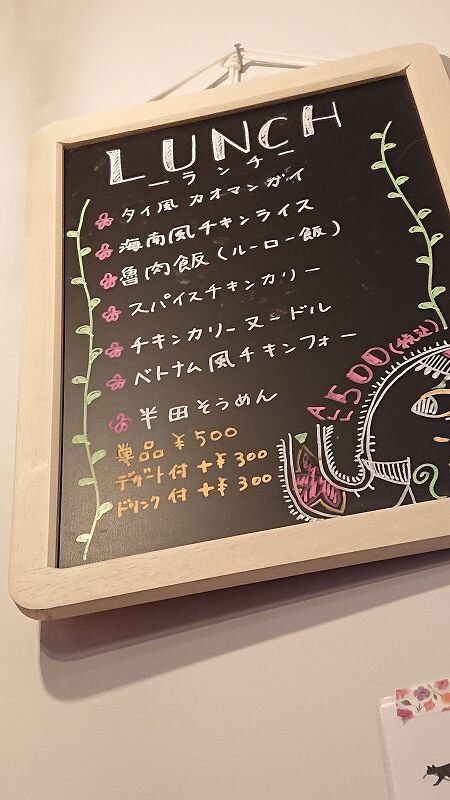 LUNCH
ーランチー
タイ風 カオマンガイ
海南風チキンライス
魯肉飯(ルーロー飯)
スパイスチキンカリー
チキンカリーヌードル
ベトナム風チキンフォー
半田そうめん
単品 ¥500
デザート付 +¥300
ドリンク付 +¥300
500(税込)